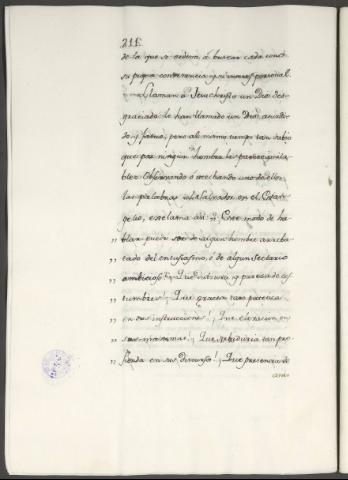 211
de la que se ordena á buscar cada uno
su propia conveniencia ysu interes personal.
Llaman á Jesuchristo un Dios des-
graciado le han llamado un Dios
do y fatuo, pero al mismo tiempo tan sabio
que por ningun hombre
blez. Observando ó acechando uno de ellos
las palabras del Salvador en el Evan-
gelio, exclama asi: ¿Este modo de ha-
,, blar puede ser de algun hombre arreba-
,, tado del entusiasmo, ó de algun sectario
,, ambicioso? ¡Que dulzura, y pureza de cos-
,, tumbres! ¡Que gracia tan patetica
,, en sus instrucciones! ¡Que elevacion en
,, sus maximas! ¡Que sabiduria tan pro-
,, funda en sus discursos! ¡Que presencia de